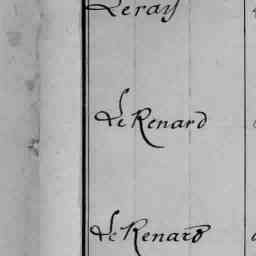 Leray
Le Renard
Le Renard